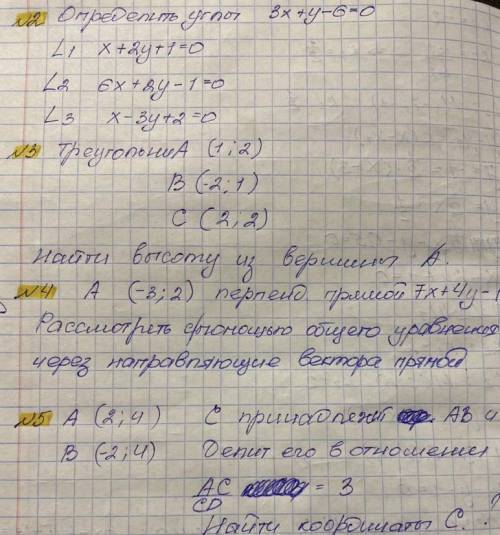 №2 Определить углы 3x+y-6=0
L1 x+2y+1=0
L2 6x+2y-1=0
L3 x-3y+2=0
№3 Треугольник A (1;2)
B (-2;1)
C (2;2)
Найти высоту из вершины A.
№4 A (-3;2) перпенд. прямой 7x+4y-1
Рассмотреть с помощью общего уравнения
через направляющие вектора прямой
№5 A (2;4) C принадлежит AB и
B (-2;4) Делит его в отношении
AC/CD = 3
Найти координаты C. ?